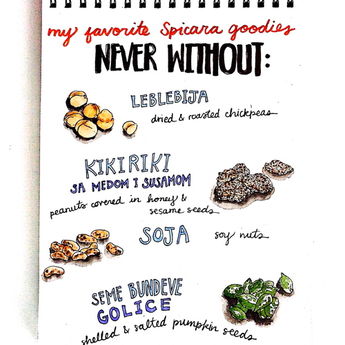 my favorite Spicara goodies
NEVER WITHOUT:
LEBLEBIJA
dried & roasted chickpeas
KIKIRIKI
SA MEDOM I SUSAMOM
peanuts covered in honey &
sesame seeds
SOJA
soy nuts
SEME BUNDEVE
GOLICE
shelled & salted pumpkin seeds